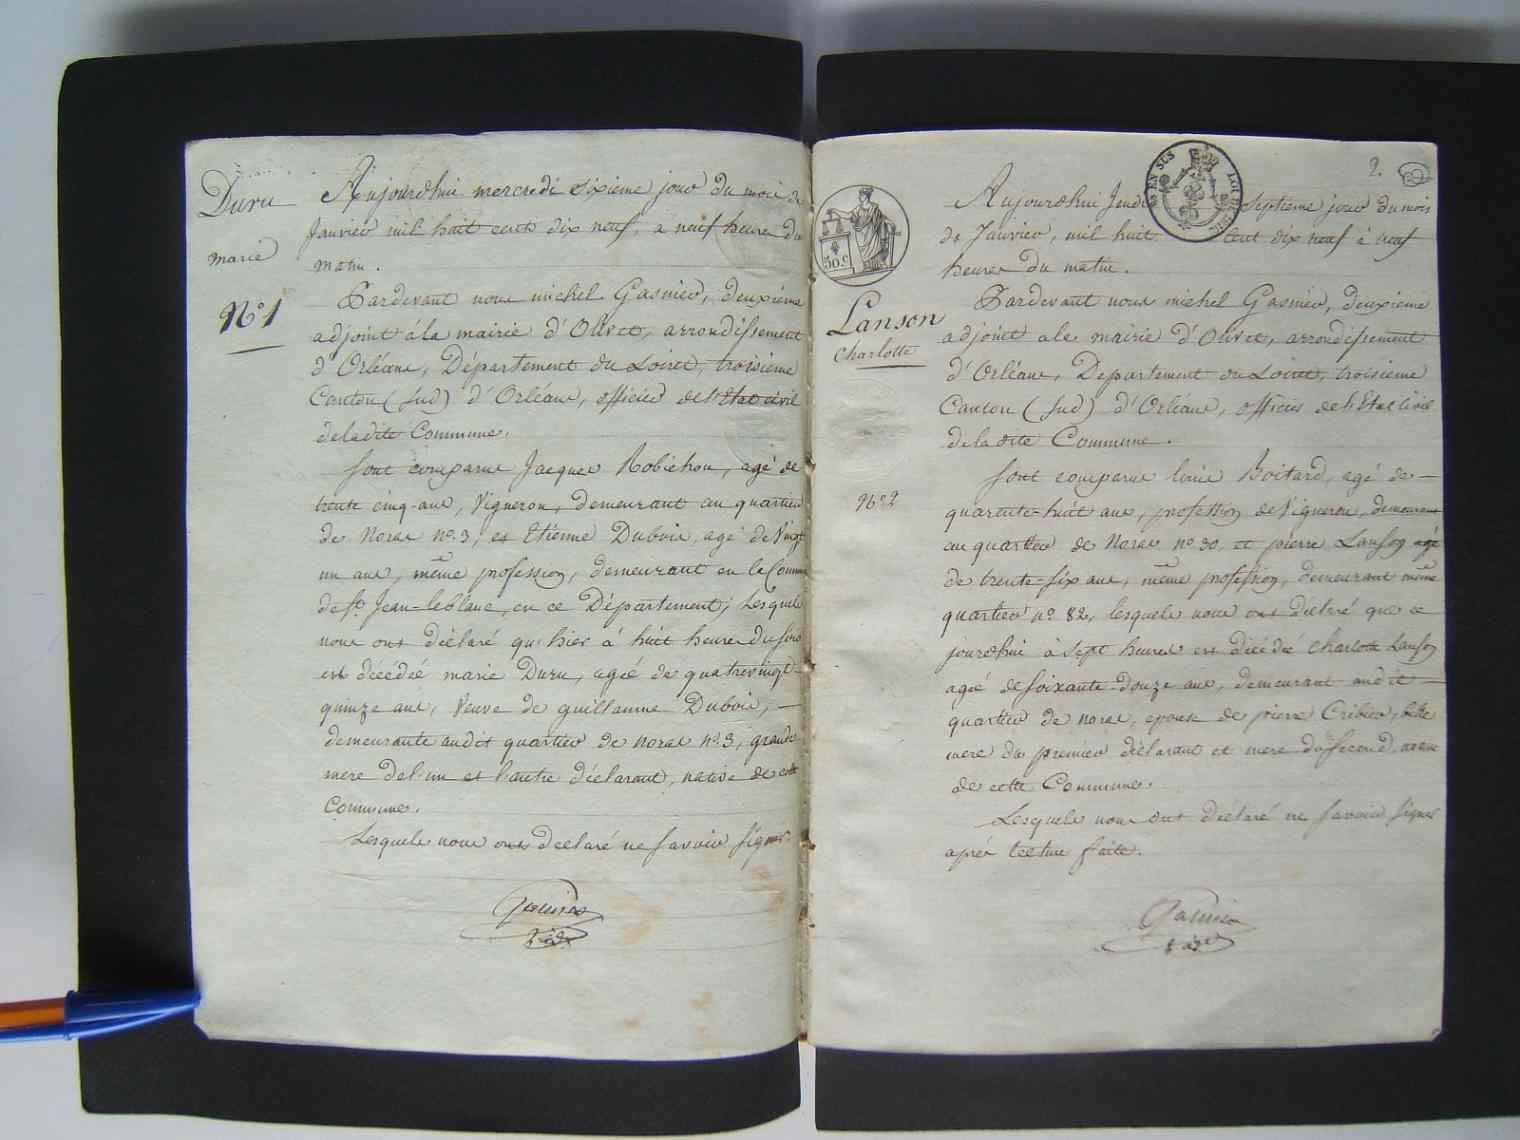 Duru
marie
N°1
Aujourdhui mercredi sixieme jour du mois de
Janvier mil huit cent dix neuf, a neuf heures du
matin.
Pardevant nous michel Gasnier, deuxiéme
adjoint à la mairie d'Olivet, arrondissement
d'Orléans, Département du Loiret, troisième
Canton (Sud) d'Orléans, officier de l'Etat civil
de ladite Commune.
Sont comparus Jacques Robichon, agé de
trente cinq ans, Vigneron, demeurant au quartier
de Noras n°. 3, et Etienne Dubois, agé de Vingt
un ans, même profession, demeurant en la Commune
de St. Jean-leblanc, en ce Département; Lesquels
nous ont déclaré qu'hier à huit heures du soir
est décédée marie Duru, agée de quatrevingt-
quinze ans, Veuve de guillaume Dubois,
demeurante audit quartier de noras n°. 3, grande
mere de l'un et l'autre déclarant, native de cette
Commune.
Lesquels nous ont declaré ne savoir signer.
Gasnier
2.
Lanson
Charlotte
N° 2
30. c
Aujourdhui Jeudi septieme jour du mois
de Janvier, mil huit cent dix neuf à neuf
heures du matin.
Pardevant nous michel Gasnier, deuxieme
adjoint a la mairie d'Olivet, arrondissement
d'Orléans, Departement du Loiret, troisieme
Canton (Sud) d'Orléans, officier de l'Etat Civil
de la dite Commune.
Sont comparus Boitard, agé de
quarente-huit ans, profession de Vigneron, demeurant
au quartier de Noras n° 30, et pierre Lanson agé
de trente-six ans, même profession, demeurant même
quartier n°. 82, lesquels nous ont déclaré que ce
jourdhui à sept heures est décédée Charlotte Lanson
agée de soixante-douze ans, demeurant audit
quartier de noras, epouse de pierre belle
mere du premier déclarant et mere du second, native
de cette Commune.
Lesquels nous ont déclaré ne savoir signer
aprés lecture faite.
Gasnier